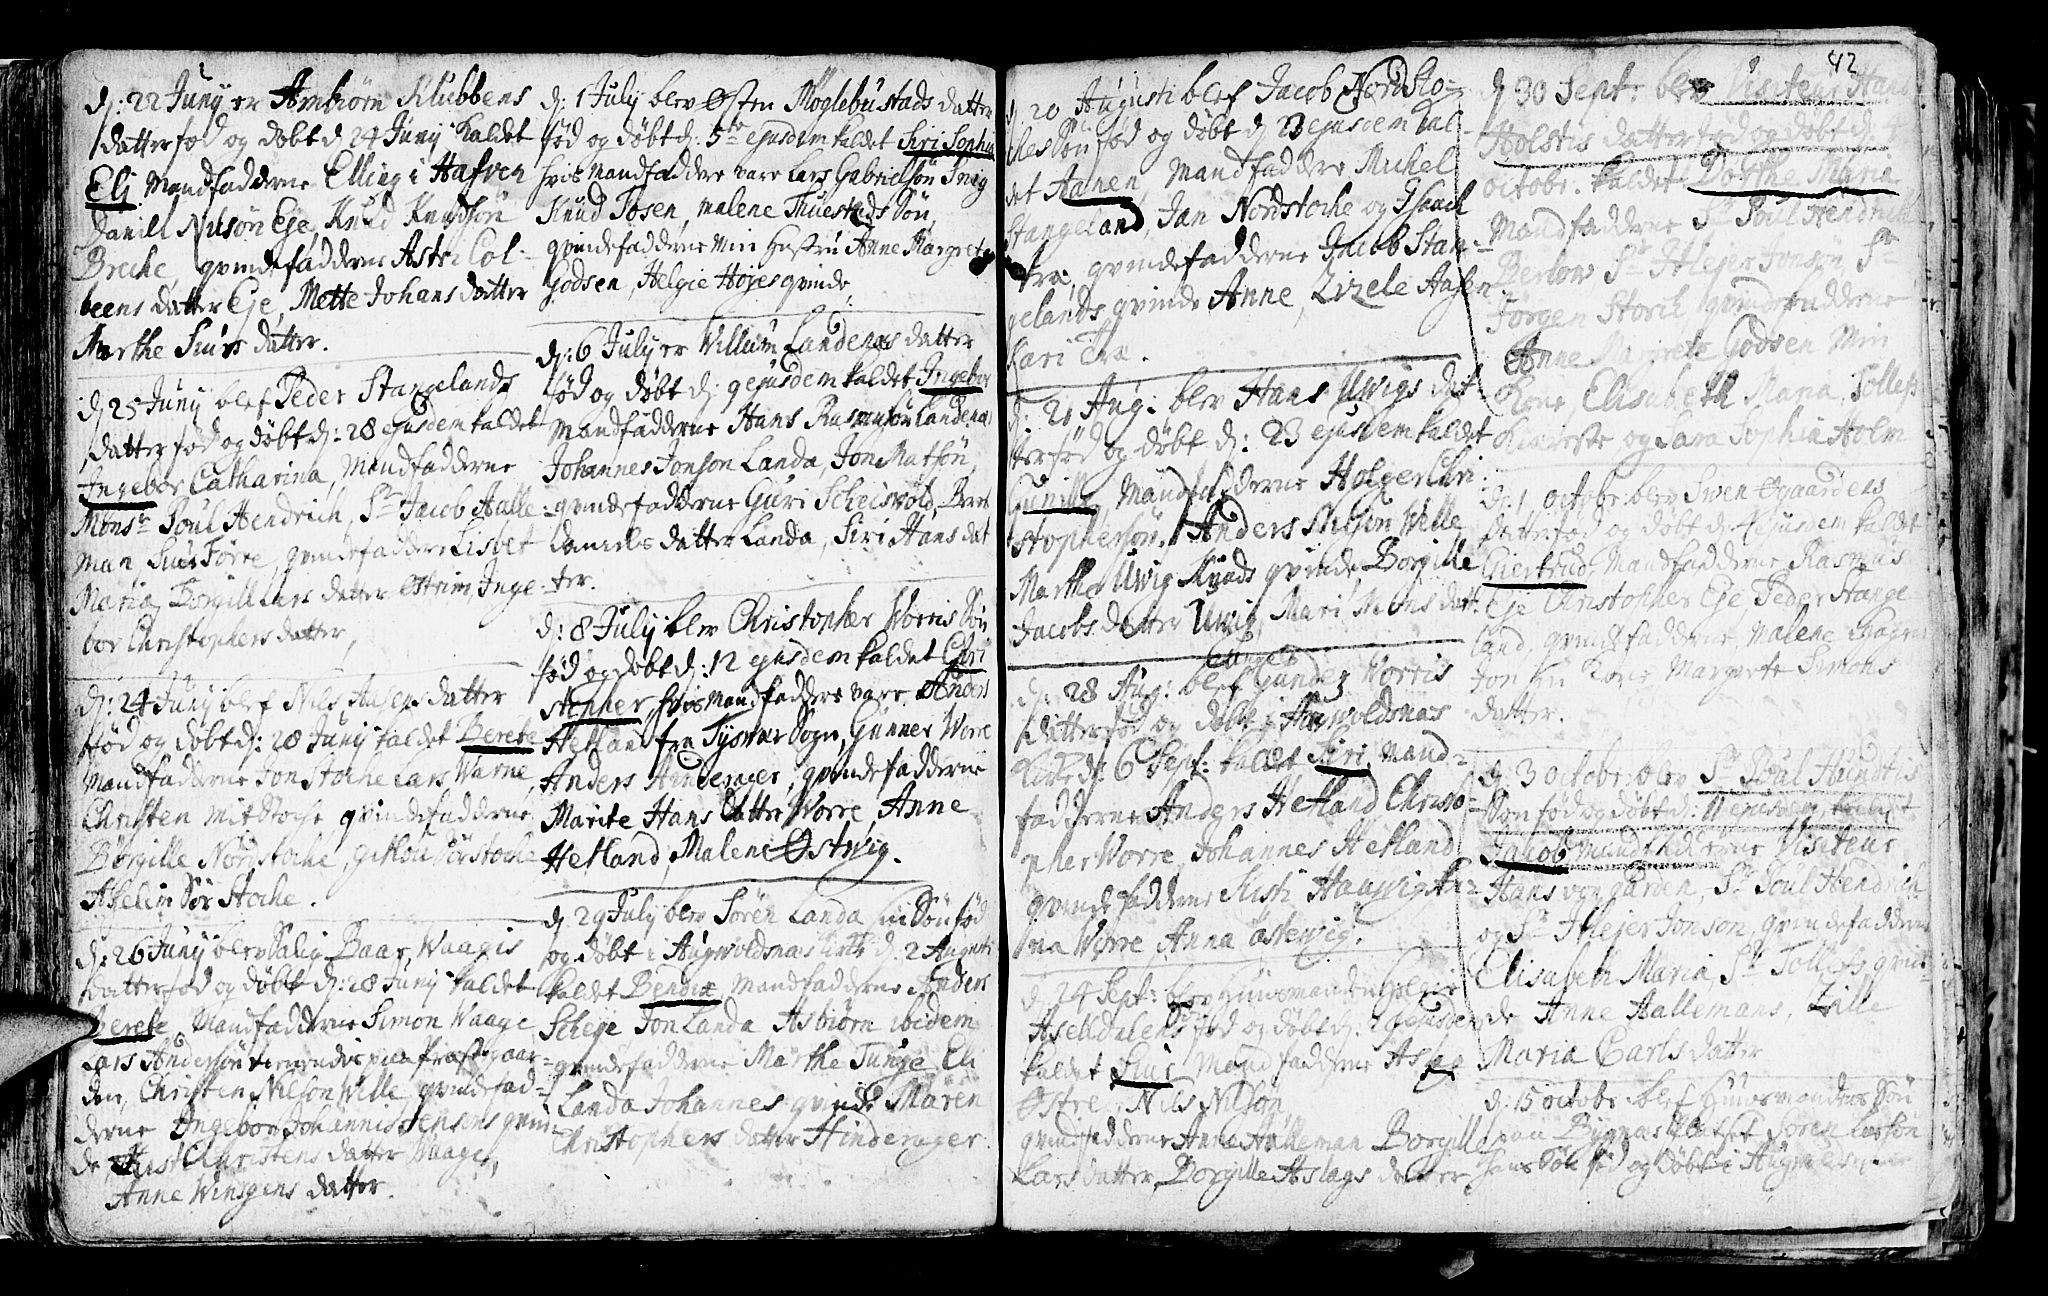 d: 22 Junÿ er Ambiörn Klubbens
datter fød og døbt d 24 Junÿ Kaldet
Eli Mandfadderne Elling i Hafven
Daniell Nilsön Eje, Knud Knudsön
Breche, qvindefadderne Astri Col-
beens datter Eje, Mette Johans datter
Marthe Siurs datter.
d 25 Junÿ blef Peder Stangelands
datter fød og døbt d: 28 ejusdem kaldet
Ingebor Catharina, Mandfadderne
Monsr Poul Hendrich, Sr Jacob Halle-
man Siur Förre, qvindefaddere Lisbet
Maria, Borgill Lars datter Østrim, Inge-
bor Christophers datter,
d: 24 Junÿ blef Nils Aasens datter
fød og døbt d: 28 Junÿ kaldet Berete
Mandfadderne Jon Stoche Lars Warne,
Christen Mitstoche, qvindefadderne
Borgille Nordstoche, Sörstoche
Sör Stoche.
d: 26 Junÿ blev Salig Baar Waagis
datter fød og døbt d: 28 Junÿ kaldet
Berete, Mandfadderne Simon Waage
Lars Andersön paa Præstegaar-
den, Christen Nilson Wille, qvindefad-
derne Ingebor Johannis Jensens qvin-
de, Christens datter Waage,
Anne Winsgens datter.
d: 1 Julÿ blev Østen Möglebustads datter
fød og døbt d: 5te ejusdem kaldet Siri Sophia
hvis Mandfaddere vare Lars Gabrielsön Snig
Knud Tosen, Malene Thuestads Sön,
qvindefadderne Min Hustru Anne Margrete
Godsen, Helgie Höjes qvinde,
d: 6 Julÿ er Willum Landenas datter
fød og døbt d: 9 ejusdem kaldet Ingebor
Mandfadderne Hans Rasmusön Landenæ
Johannes Jonson Landa, Jon Matsön,
qvindefadderne Guri Scheiswold, Beret
Daniels datter Landa, Siri Hans dat
ter.
d: 8 Julÿ blev Christopher Worris Sön
fød og döbt d: 12 ejusdem kaldet Chri
stopher, hvis Mandfaddere vare Anders
Hetland fra Tyswær Sogn, Gunner Worre
Anders Hinderager, qvindefadderne
Marite Hans datter Worre, Anne
Hetland, Malene Østwig.
d 29 Julÿ blev Sören Landa en Sön fød
og døbt i Augwoldsnas Kirke d: 2 Augusti
kaldet Bendix Mandfadderne Anders
Scheje Jon Landa Asbiörn ibidem
qvindefadderne Marthe Tunge Eli
Landa Johannes qvinde Maren
Christophers datter Hinderager.
42
d 20 Augusti blef Jacob Nordsto-
ches Sön fød og døbt d 23 ejusdem kal-
det Aanen Mandfaddere Michel
Stangeland, Jan Nordstoche og Isaach
Træ, qvindefadderne Jacob Stan-
gelands qvinde Anne, Lizele Aasen
Kari Træ.
d: 21 Aug: blev Hans Uwigs dat
ter fød og døbt d: 23 ejusdem kaldet
Gunille Mandfadderne Holger Chri-
stophersön, Anders Nilson Wille
Marthe Uwig Knuds qvinde, Borgille
Jacobs datter Uwig, Mari Mons dat:
d: 28 Aug: blef Gunder Worris
datter fød og døbt i Augwoldsnas
Kirke d: 6 Sept: kaldet Siri, Mand-
fadderne Anders Hetland Christo-
pher Worre, Johannes Hetland
qvindefadderne Kisti Haawig An-
na Worre Anna östewig.
d: 24 Sept: blev Huusmanden Helgie
Aselldalens fød og døbt d: ejusdem
kaldet Siur Mandfadderne Aslag
Østre, Nils Nilsön
qvindfadderne Anne Halleman Borgill
Lars datter, Borgille Aslags datter,
d 30 Sept: blev Visiteur Hans
Holstis datter fød og døbt d: 4
octobr. kaldet Dorthe Maria
Mandfadderne Sr Poul Hendrich
Berlow Sr Thejer Jonsön, Sr
Jörgen Storch, qvindefadderne
Anne Margrete Godsen Min
Kone Elisabeth Maria, Tollefs
Kiereste, og Sara Sophia Holm
d: 1 octobr. blev Swen Øgaardens
datter fød og døbt d: 4 ejusdem kaldet
Giertrud, Mandfadderne Rasmus
Eje Christopher Eje, Peder Stange
land, qvindefadderne, Malene
Kone Margrete Simons
datter.
d: 3 octobr: blev Sr Poul Hendtis
Sön fød og døbt d: 11 ejusdem, kaldet
Jakob, Mandfadderne Visiteur
Hans von gården, Sr Poul Hendrich
og Sr Thejer Jonson, qvindefadderne
Elisabeth Maria, Sr Tollefs qvin-
de Anne Hallemans, Zille
Maria Carls datter
d: 15 octobr. blef Huusmandens Sön
paa Bygnas Pladset Sören Larsön
hans Sön fød og døbt i Augwoldsnæs